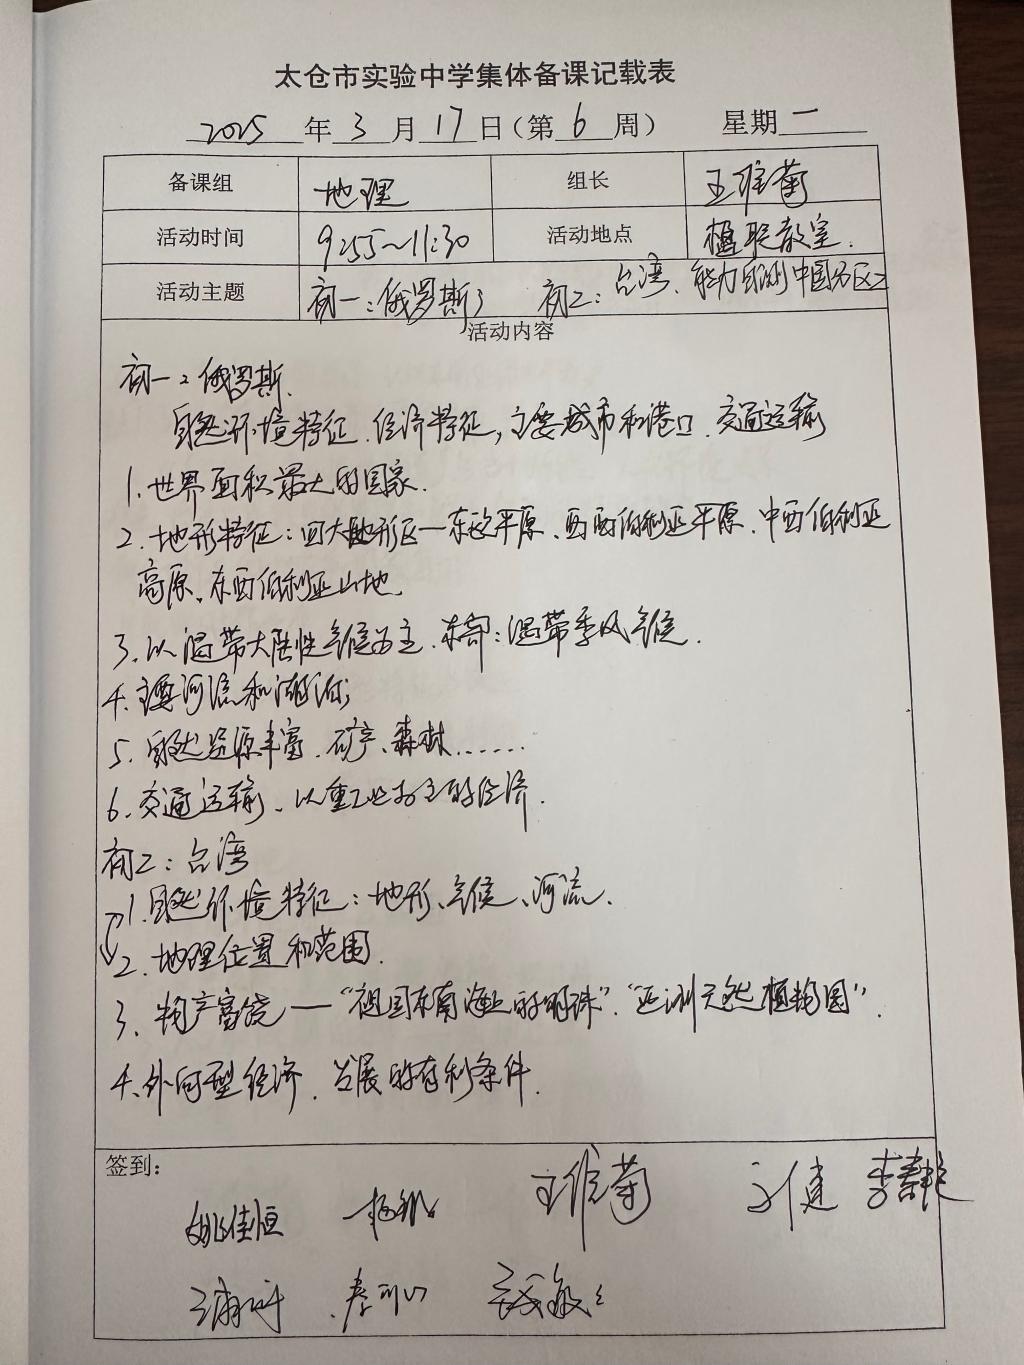 太仓市实验中学集体备课记载表
2025年3月17日(第6周) 星期一
备课组 地理 组长 王维菊
活动时间 9:55~11:30 活动地点 植联教室.
活动主题 初一:俄罗斯 初二:台湾、能力自测中国分区
活动内容
初一:俄罗斯.
自然环境特征.经济特征,主要城市和港口.交通运输
1.世界面积最大的国家.
2.地形特征:四大地形区—东欧平原、西西伯利亚平原、中西伯利亚
高原、东西伯利亚山地.
3.以温带大陆性气候为主.东部:温带季风气候.
4.主要河流和湖泊;
5.自然资源丰富.矿产、森林......
6.交通运输、以重工业为主的经济.
初二:台湾
1.自然环境特征:地形、气候、河流.
2.地理位置和范围.
3.物产富饶——“祖国东南海上的明珠”.“亚洲天然植物园”.
4.外向型经济.发展的有利条件.
签到:
姚佳恒 王维菊